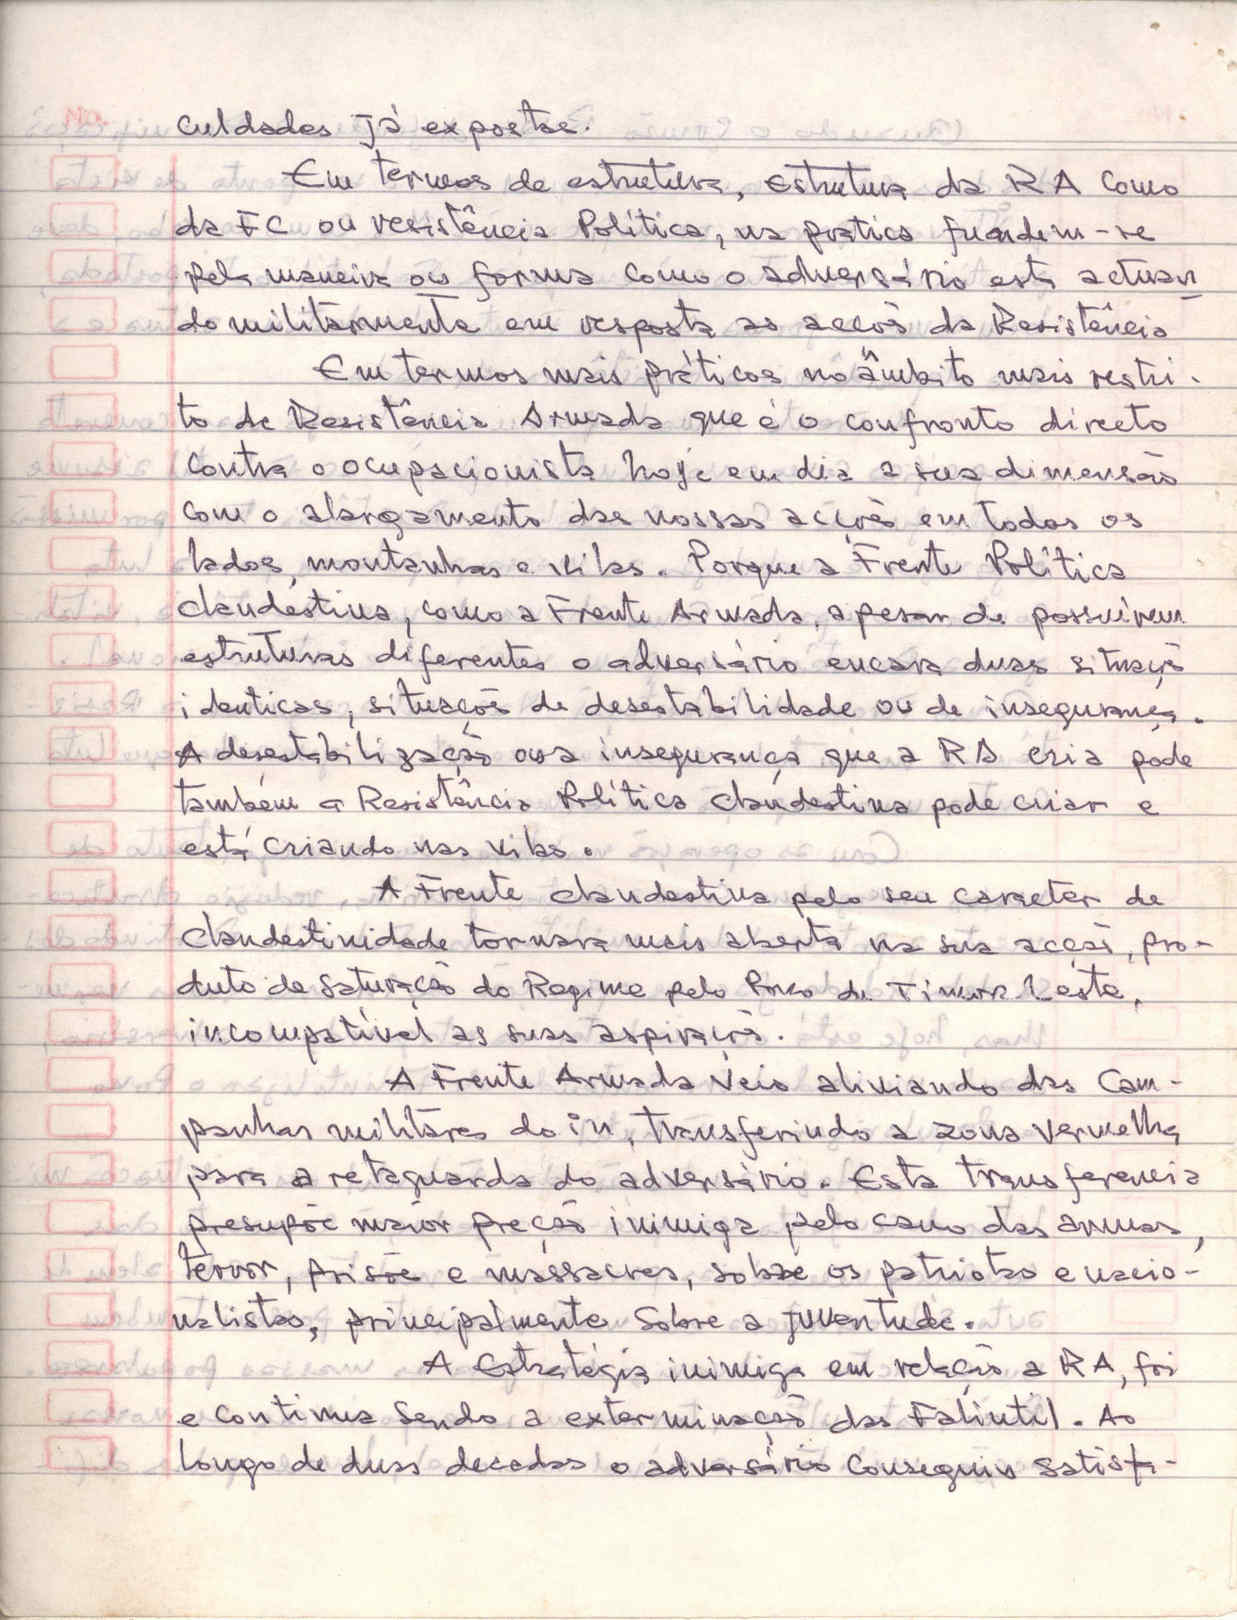 culdades já expostas.
Em termos de estrutura, estrutura da RA como
da FC ou resistência Política, na pratica fundem-se
pela maneira ou forma como o adversário está actuan
do militarmente em resposta as acções da Resistência
Em termos mais práticos no âmbito mais restri-
to de Resistência Armada que é o confronto directo
contra o ocupacionista hoje em dia a sua dimensão
com o alargamento das nossas acções em todos os
lados, montanhas e vilas. Porque a Frente Política
clandestina, como a Frente Armada, apesar de possuirem
estruturas diferentes o adversário encara duas situaçõ
identicas, situações de desestabilidade ou de insegurança.
A desestabilização ou a insegurança que a RA cria pode
também a Resistência Política clandestina pode criar e
está criando nas vilas.
A Frente clandestina pelo seu caracter de
clandestinidade tornara mais aberta na sua acção, pro-
duto de saturação do Regime pelo Povo de Timor Leste,
incompatível as suas aspirações.
A Frente Armada veio aliviando das Cam-
panhas militares do in, transferindo a zona vermelha
para a retaguarda do adversário. Esta transferencia
presupõe maior preção inimiga pelo cano das armas,
terror, prisõe e massacres, sobre os patriotas e nacio-
nalistas, principalmente sobre a juventude.
A Estratégia inimiga em relação a RA, foi
e continua sendo a exterminação das Falintil. Ao
longo de duas decadas o adversário conseguiu satisfa-